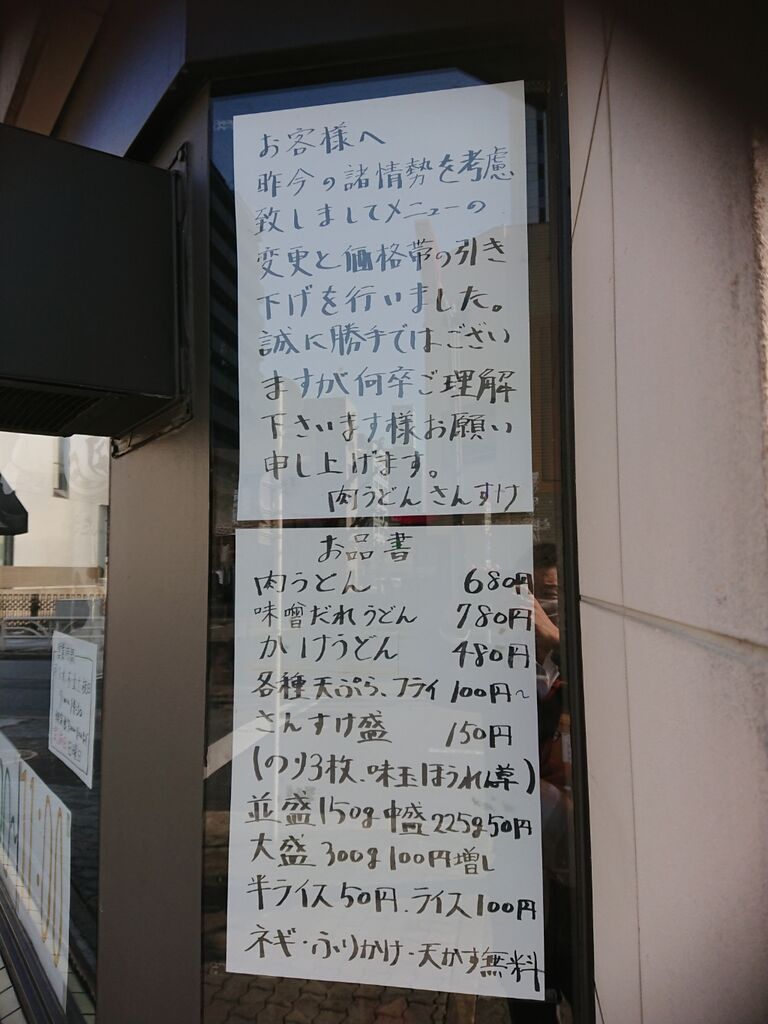 お客様へ
昨今の諸情勢を考慮
致しましてメニューの
変更と価格帯の引き
下げを行いました。
誠に勝手ではござい
ますが何卒ご理解
下さいます様お願い
申し上げます。
肉うどんさんすけ
お品書
肉うどん 680円
味噌だれうどん 780円
かけうどん 480円
各種天ぷら、フライ 100円~
さんすけ盛 150円
(のり3枚、味玉ほうれん草)
並盛150g中盛225g50円
大盛300g100円増し
半ライス50円、ライス100円
ネギ・ふりかけ・天かす無料